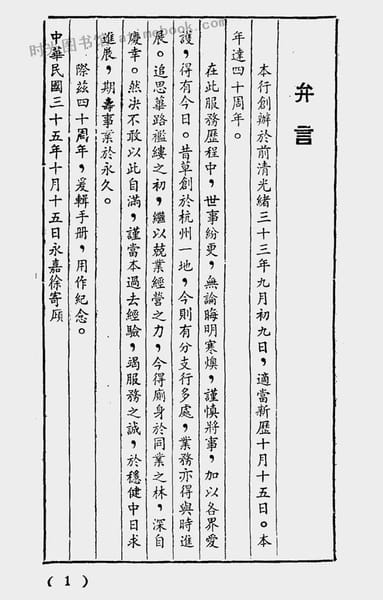 弁言
本行創辦於前清光緒三十三年九月初九日，適當新歷十月十五日。本
年達四十周年。
在此服務歷程中，世事紛更，無論晦明寒燠，謹慎將事，加以各界愛
護，得有今日。昔草創於杭州一地，今則有分支行多處，業務亦得與時進
展。追思蓽路襤褸之初，繼以兢業經營之力，今得廁身於同業之林，深自
慶幸。然決不敢以此自滿，謹當本過去經驗，竭服務之誠，於穩健中日求
進展，期壽事業於永久。
際茲四十周年，爰輯手册，用作紀念。
中華民國三十五年十月十五日永嘉徐寄廎
( 1 )